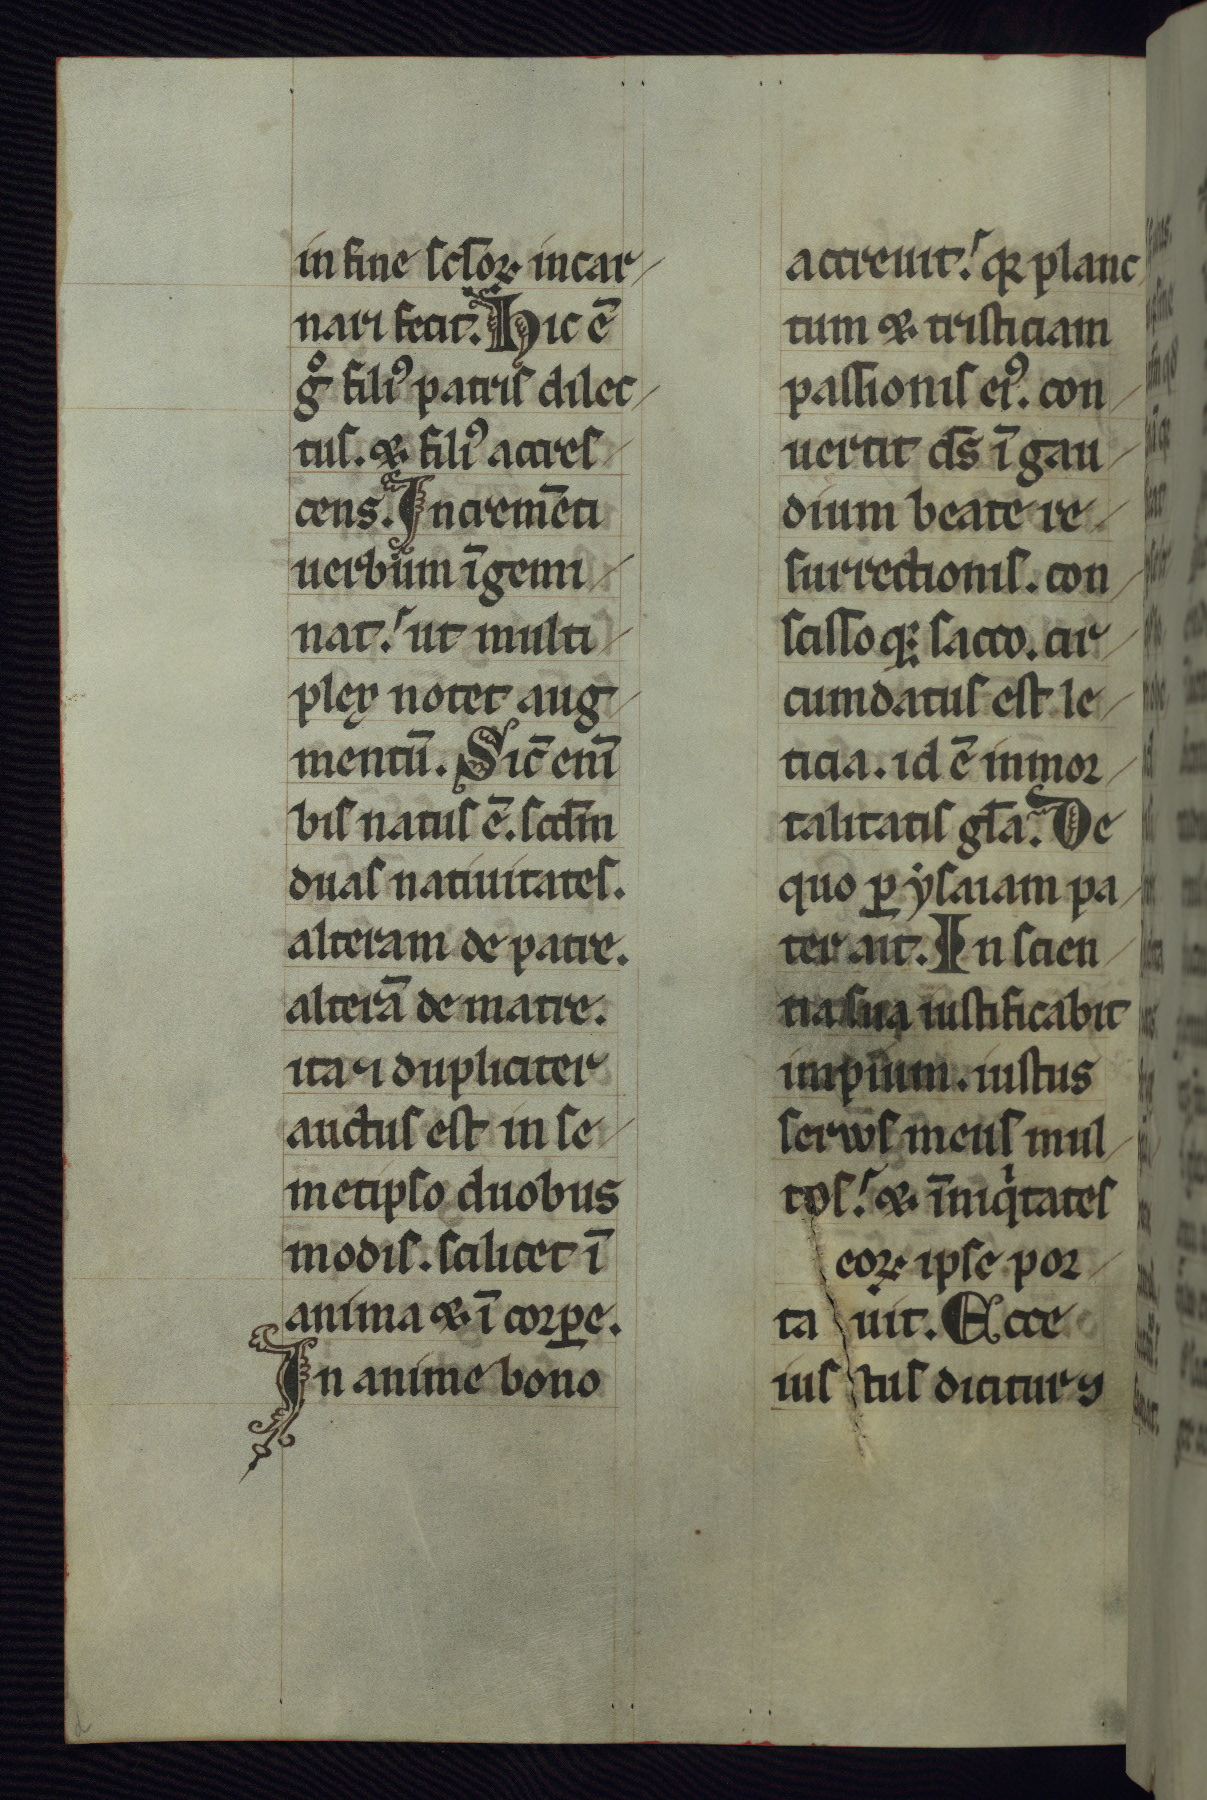 in fine scl̄oꝝ incar
nari fecit. Hic ē
gͦ filiꝰ patris dilec
tus. & filiꝰ accres
cens. Incremēti
uerbum īgemi
nat. ut multi
plex notet aug
mentū. Sic̄ eni̅
bis natus ē. scd̄m
duas natiuitates.
alteram de patre.
alterā de matre.
ita ⁊ dupliciter
auctus est in se
metipso duobus
modis. scilicet ī
anima & ī corꝑe.
In anime bono
accreuit. qꝛ planc
tum & tristiciam
passionis eiꝰ. con
uertit ds̄ ī gau
dium beate re
surrectionis. con
scissoqꝫ sacco. cir
cumdatus est le
ticia. id ē inmor
talitatis gl̄a. De
quo ꝑ ẏsaiam pa
ter ait. In scien
tia sua iustificabit
impium. iustus
seruus meus mul
tos. & īniqͥtates
eoꝝ ipse por
ta uit. Ecce
ius tus dicitur ꝯ